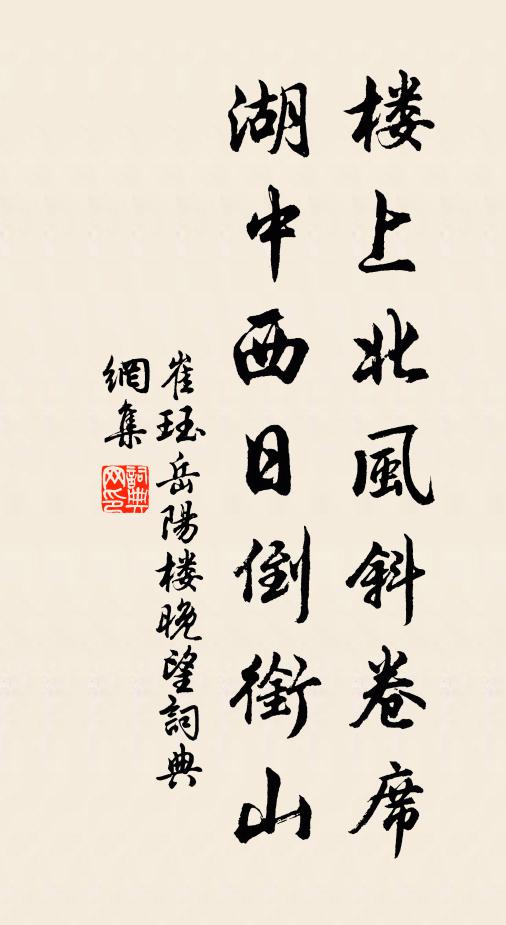 楼上北風斜卷席
湖中西日倒銜山
崔珏岳陽楼晚望詞典
網集
詞典
网印